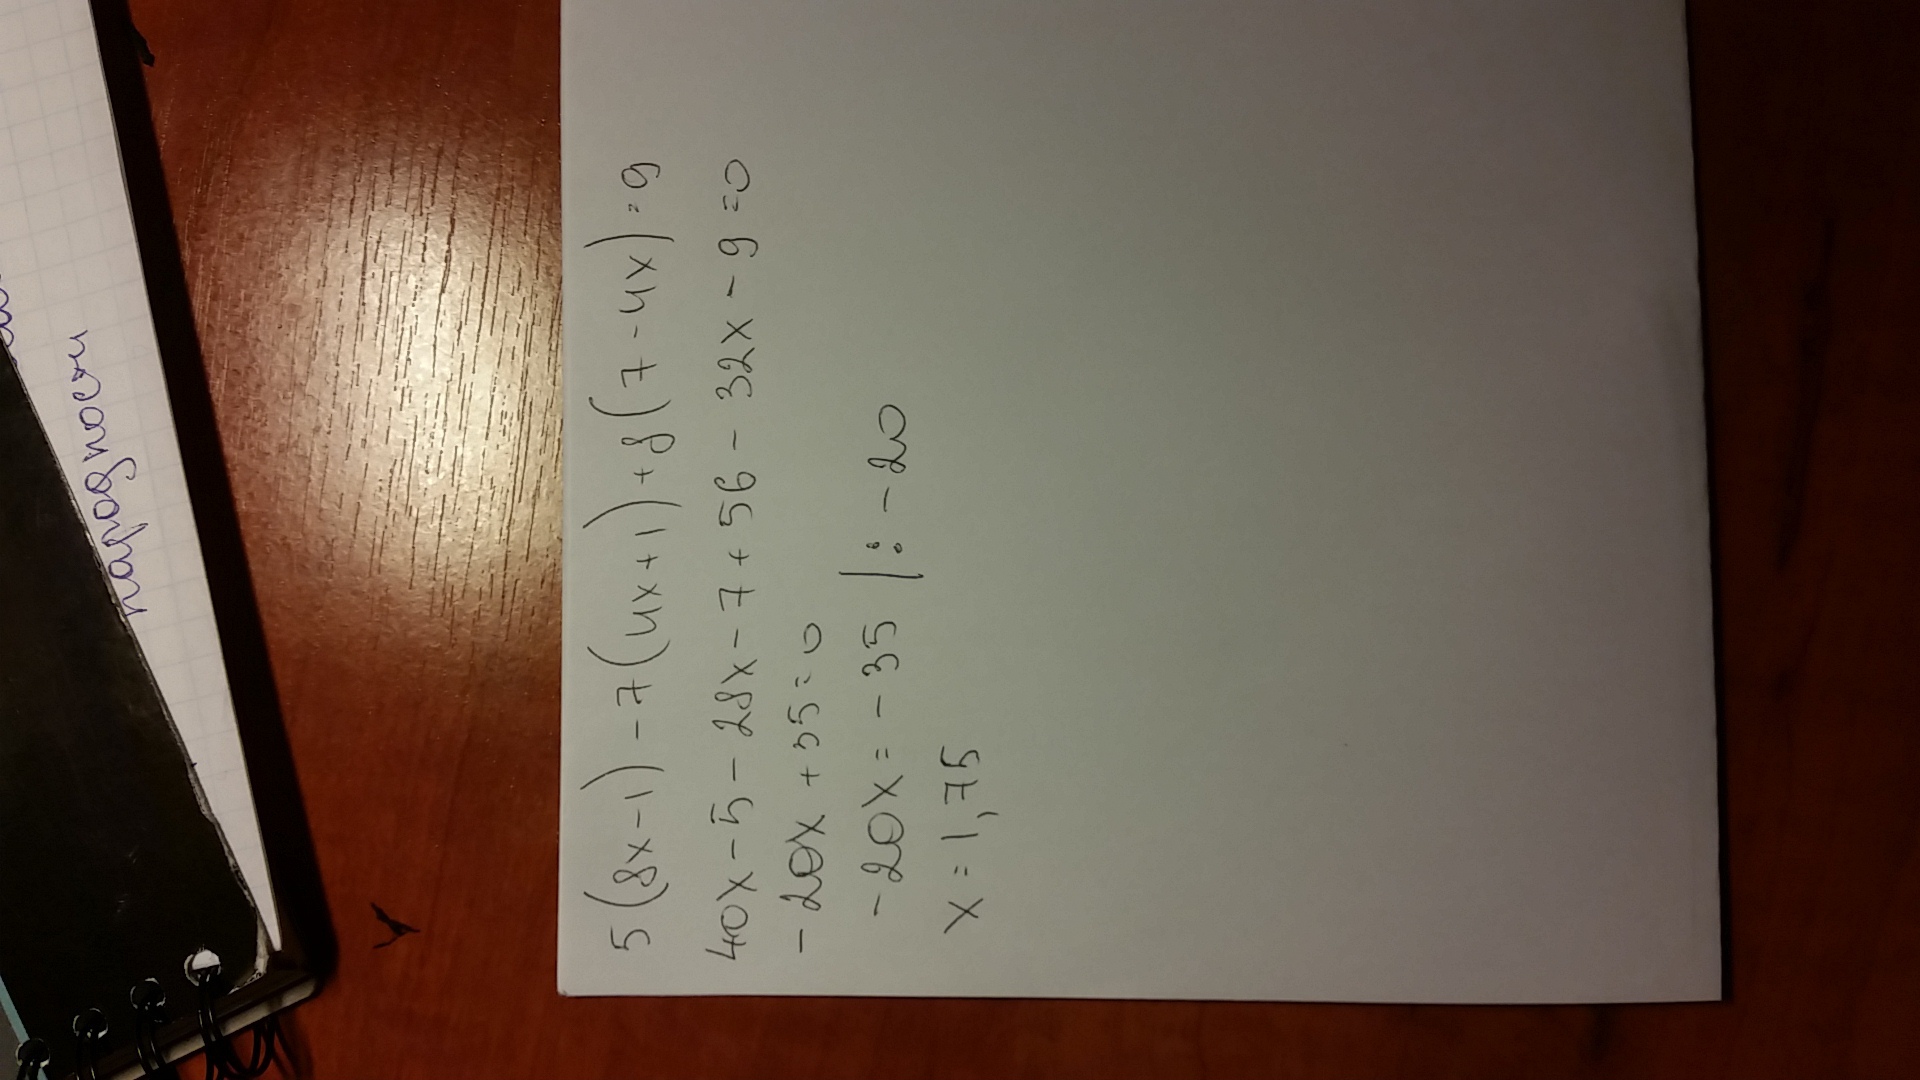 5(8x-1)-7(4x+1)+8(7-4x)=9
40x-5-28x-7+56-32x-9=0
-20x+35=0
-20x=-35 |:-20
x=1,75
народности